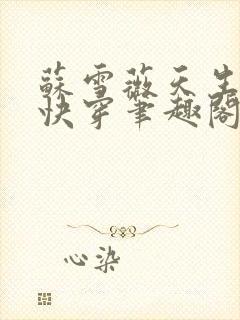 蘇雪薇天生
快穿筆趣閣
心染